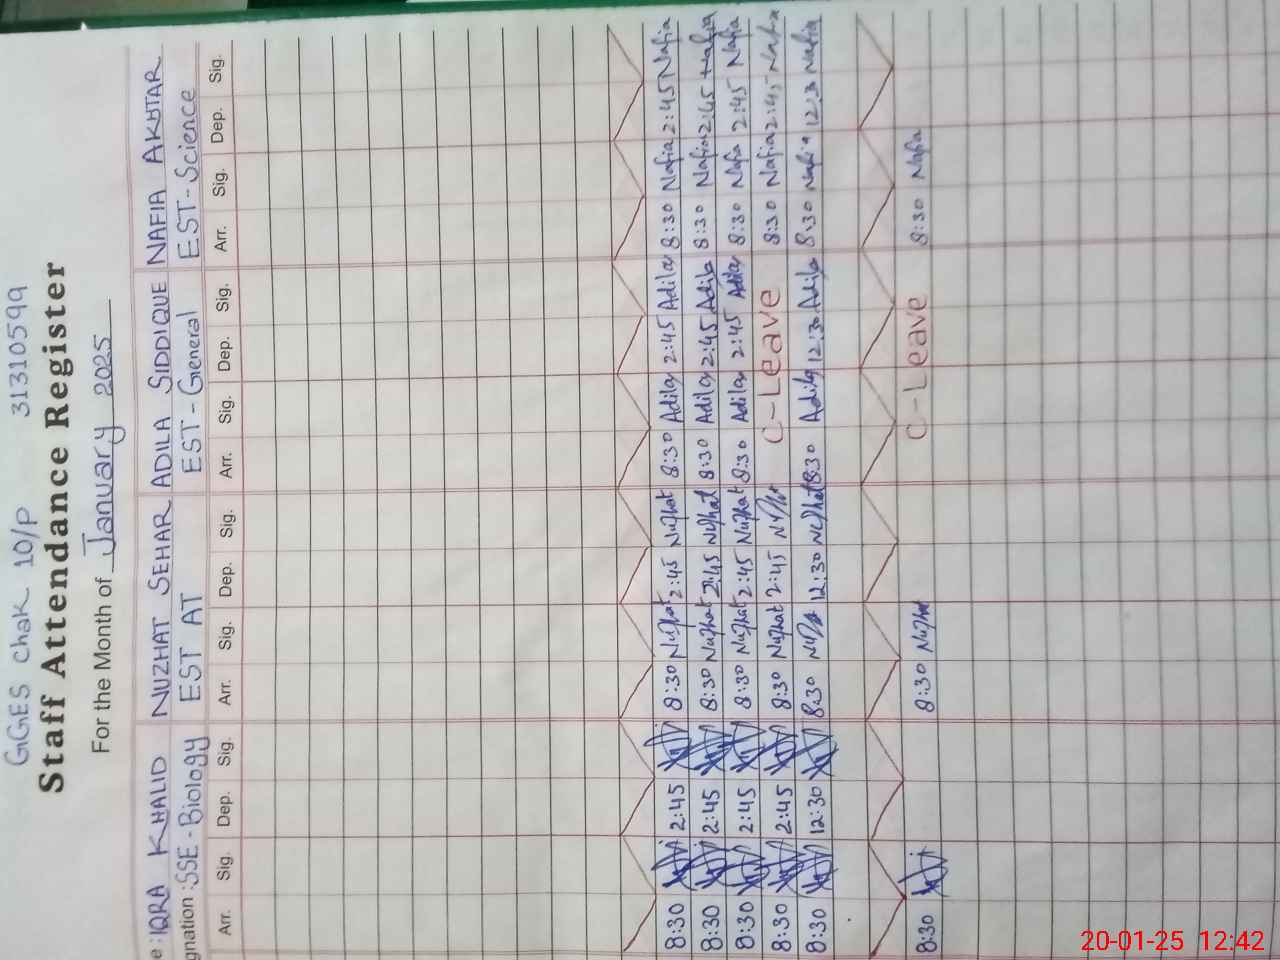 GGES Chak 10/P 31310599
Staff Attendance Register
For the Month of January 2025
e : IQRA KHALID NUZHAT SEHAR ADILA SIDDIQUE NAFIA AKHTAR
gnation : SSE-Biology EST AT EST-General EST-Science
Arr. Sig. Dep. Sig. Arr. Sig. Dep. Sig. Arr. Sig. Dep. Sig. Arr. Sig. Dep. Sig.
8:30 2:45 8:30 Nuzhat 2:45 Nuzhat 8:30 Adila 2:45 Adila 8:30 Nafia 2:45 Nafia
8:30 2:45 8:30 Nuzhat 2:45 Nuzhat 8:30 Adila 2:45 Adila 8:30 Nafia 2:45 Nafia
8:30 2:45 8:30 Nuzhat 2:45 Nuzhat 8:30 Adila 2:45 Adila 8:30 Nafia 2:45 Nafia
8:30 2:45 8:30 Nuzhat 2:45 C-Leave 8:30 Nafia 2:45 Nafia
8:30 12:30 8:30 12:30 Nuzhat 8:30 Adila 12:30 Adila 8:30 Nafia 12:3 Nafia
8:30 8:30 Nuzhat C-Leave 8:30 Nafia
20-01-25 12:42